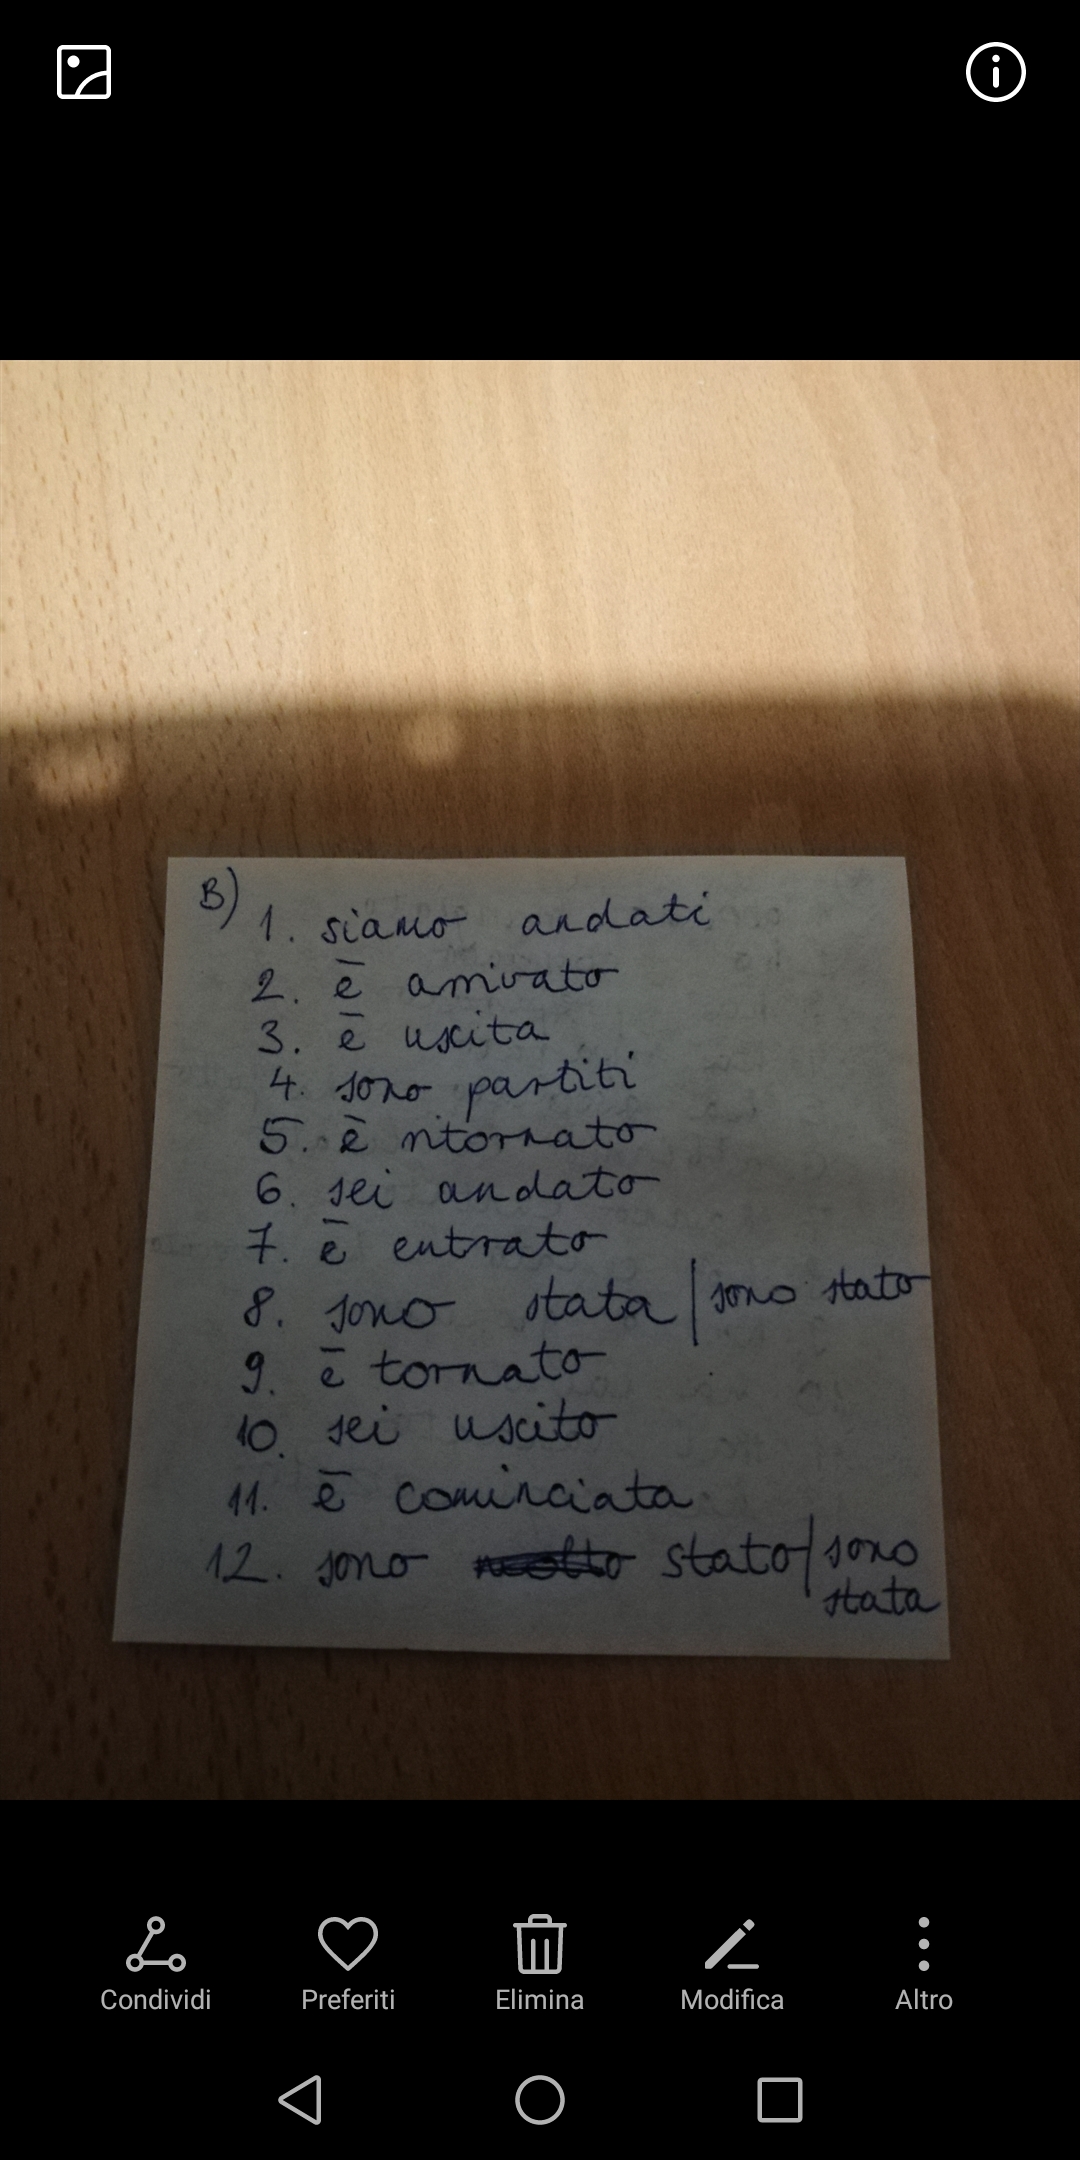 B)
1. siamo andati
2. è arrivato
3. è uscita
4. sono partiti
5. è ritornato
6. sei andato
7. è entrato
8. sono stata | sono stato
9. è tornato
10. sei uscito
11. è cominciata
12. sono stato | sono
stata
Condividi Preferiti Elimina Modifica Altro